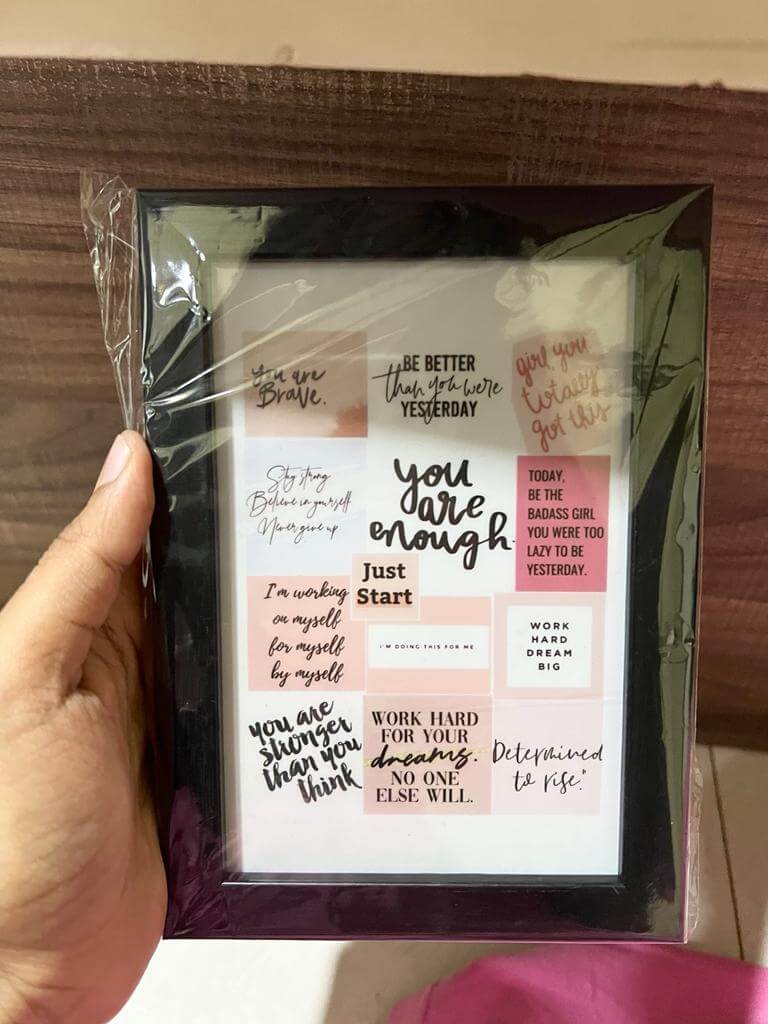 you are
Brave.
BE BETTER
than you were
YESTERDAY
girl, you
totally
got this
Stay strong
Believe in yourself
Never give up
you
are
enough.
TODAY,
BE THE
BADASS GIRL
YOU WERE TOO
LAZY TO BE
YESTERDAY.
Just
Start
I'm working
on myself
for myself
by myself
I'M DOING THIS FOR ME.
WORK
HARD
DREAM
BIG
you are
stronger
than you
think
WORK HARD
FOR YOUR
dreams.
NO ONE
ELSE WILL.
Determined
to rise."